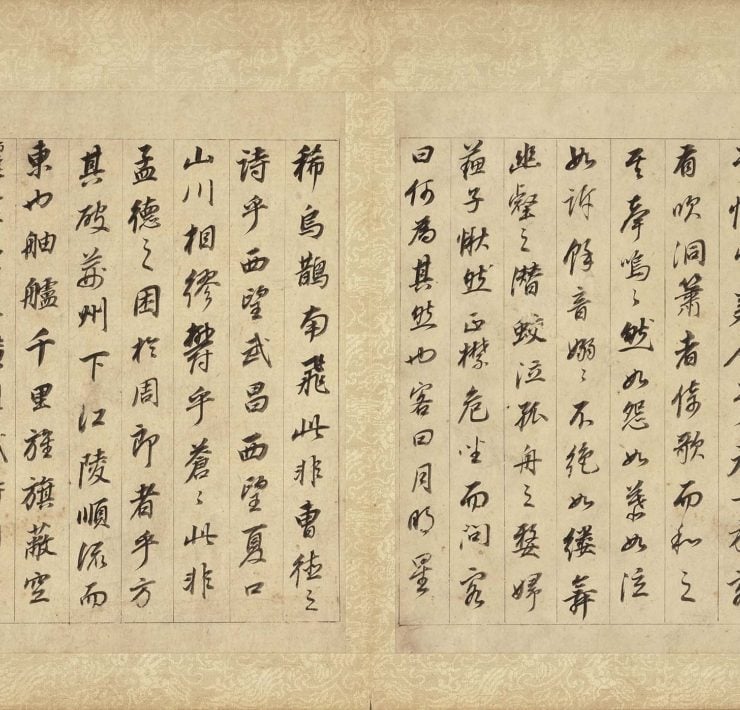 有吹洞簫者倚歌而和之
其聲嗚〻然如怨如慕如泣
如訴餘音嫋〻不絕如縷舞
幽壑之潛蛟泣孤舟之嫠婦
蘇子愀然正襟危坐而問客
曰何為其然也客曰月明星
稀烏鵲南飛此非曹德之
詩乎西望武昌西望夏口
山川相繆鬱乎蒼〻此非
孟德之困於周郎者乎方
其破荊州下江陵順流而
東也舳艫千里旌旗蔽空